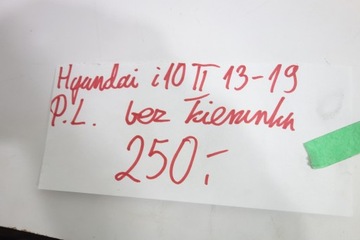 Hyundai i10 II 13-19
P.L. bez kierunku
250,-